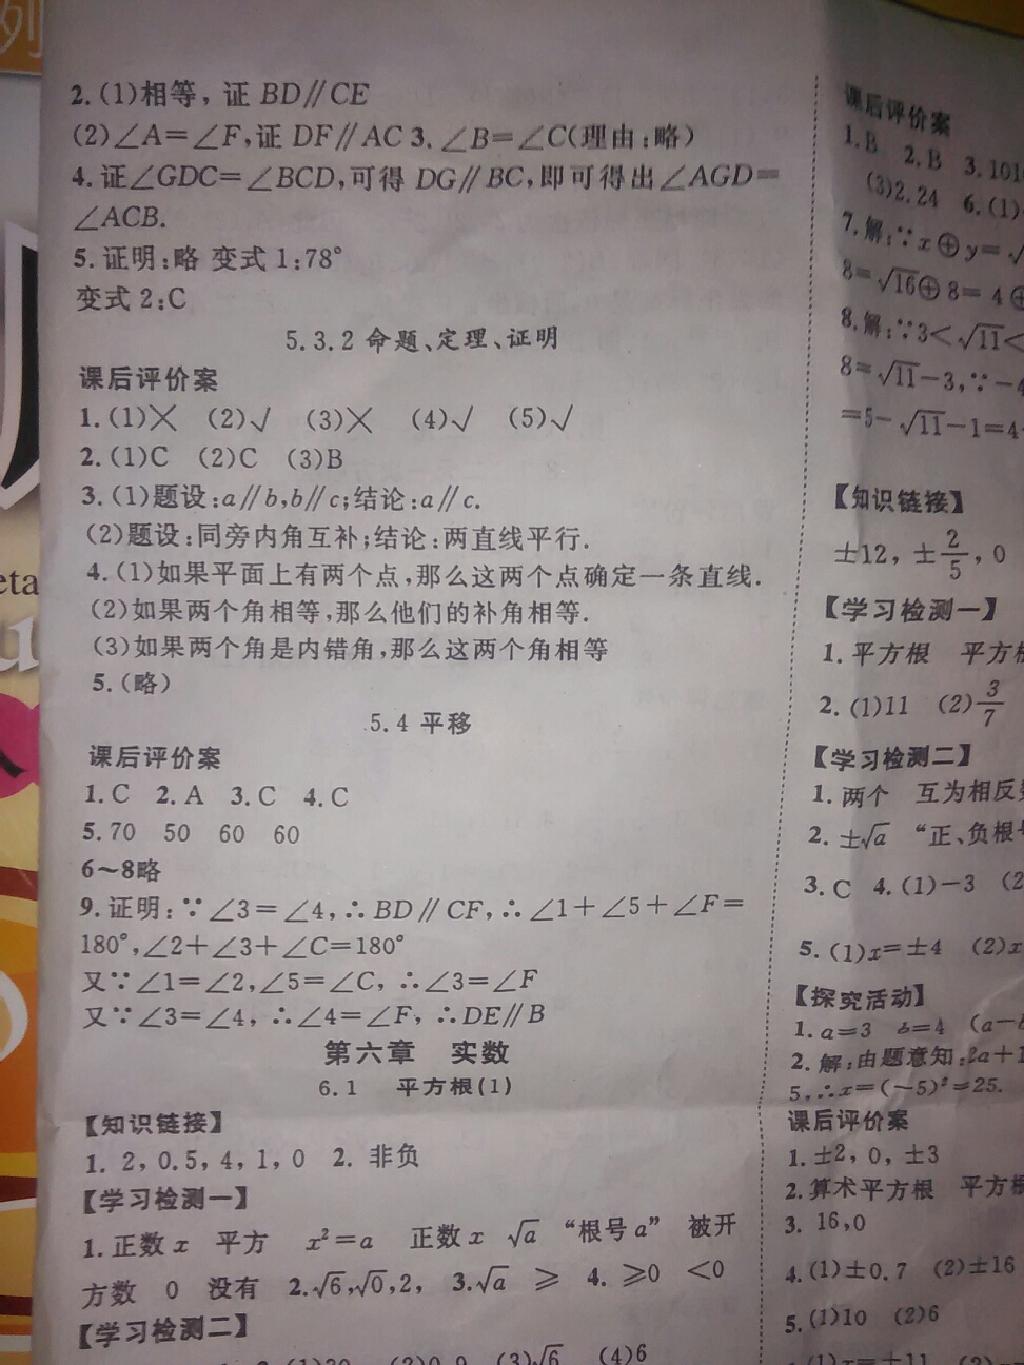 列
2.(1)相等，证 BD∥CE
(2)∠A=∠F,证 DF∥AC 3.∠B=∠C(理由:略)
4.证∠GDC=∠BCD,可得 DG∥BC,即可得出∠AGD=
∠ACB.
5.证明:略 变式1:78°
变式2:C
5.3.2 命题、定理、证明
课后评价案
1.(1)╳ (2)√ (3)╳ (4)√ (5)√
2.(1)C (2)C (3)B
3.(1)题设:a∥b,b∥c;结论:a∥c.
(2)题设:同旁内角互补;结论:两直线平行.
4.(1)如果平面上有两个点,那么这两个点确定一条直线.
(2)如果两个角相等,那么他们的补角相等.
(3)如果两个角是内错角,那么这两个角相等
5.(略)
5.4 平移
课后评价案
1.C 2.A 3.C 4.C
5.70 50 60 60
6~8略
9.证明:∵∠3=∠4,∴BD∥CF,∴∠1+∠5+∠F=
180°,∠2+∠3+∠C=180°
又∵∠1=∠2,∠5=∠C,∴∠3=∠F
又∵∠3=∠4,∴∠4=∠F,∴DE∥B
第六章 实数
6.1 平方根(1)
【知识链接】
1. 2,0.5,4,1,0 2. 非负
【学习检测一】
1.正数x 平方 x²=a 正数x √a “根号a” 被开
方数 0 没有 2.√6,√0,2, 3.√a ≥ 4. ≥0 <0
【学习检测二】
(3)√6 (4)6
课后评价案
1.B 2.B 3.101
(3)2.24 6.(1)
7.解:∵x⊕y=√
8=√16⊕8=4⊕
8.解:∵3<√11<
8=√11-3,∵-4
=5-√11-1=4-
【知识链接】
±12,±2/5,0
【学习检测一】
1.平方根 平方根
2.(1)11 (2)3/7
【学习检测二】
1.两个 互为相反
2.±√a “正、负根号
3.C 4.(1)-3 (2
5.(1)x=±4 (2)x
【探究活动】
1.a=3 b=4 (a-b
2.解:由题意知:2a+1
5,∴x=(-5)²=25.
课后评价案
1.±2,0,±3
2.算术平方根 平方根
3. 16,0
4.(1)±0.7 (2)±16
5.(1)10 (2)6
(1)x=±11